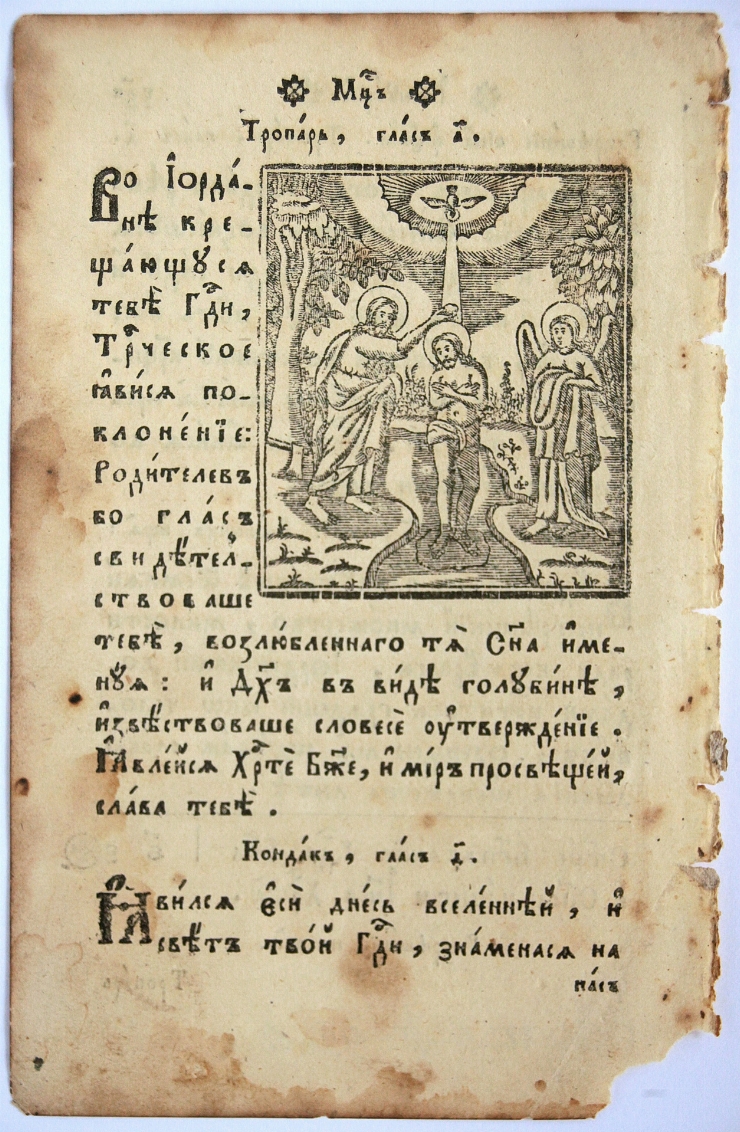 Мⷭ҇цъ
Тропа́рь, гла́съ а҃.
Во І҆орда́-
нѣ кре-
ща́ющуся
тебѣ̀ Гдⷭ҇и,
Трⷪ҇ческое
ꙗ҆ви́ся по-
клоне́нїе:
Роди́телевъ
бо гла́съ
свидѣ́тел-
ствоваше
тебѣ̀, возлю́бленнаго тѧ̀ Сн҃а и҆ме-
ну́я: и҆ Дх҃ъ въ ви́дѣ голуби́нѣ,
и҆звѣ́ствоваше словесѐ ᲂу҆твержде́нїе.
Ꙗ҆вле́йся Хрⷭ҇тѐ Бж҃е, и҆ мі́ръ просвѣще́й,
сла́ва тебѣ̀.
Конда́къ, гла́съ д҃.
Ꙗ҆ви́лся є҆сѝ дне́сь вселе́ннѣй, и҆
свѣ́тъ тво́й Гдⷭ҇и, зна́менася на
на́съ